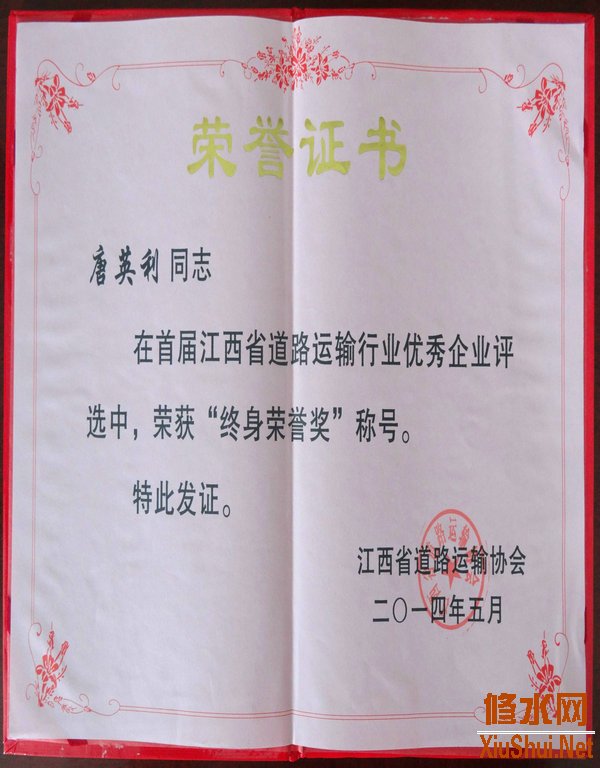 荣誉证书
唐英利 同志
在首届江西省道路运输行业优秀企业评
选中，荣获“终身荣誉奖”称号。
特此发证。
江西省道路运输协会
二〇一四年五月
修水网
XiuShui.Net